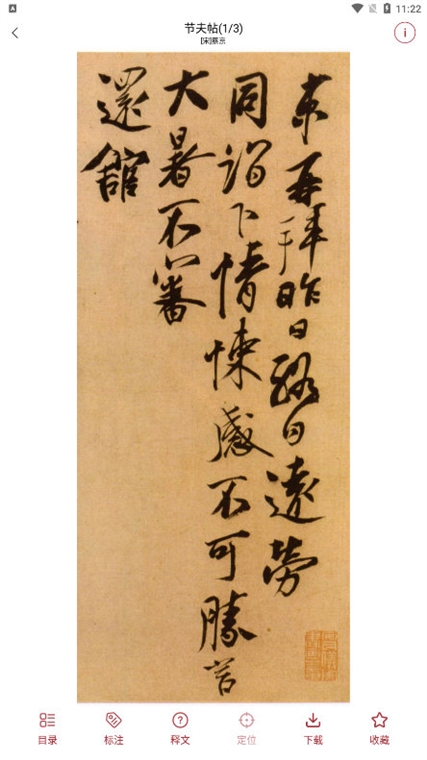 11:22
节夫帖(1/3)
[宋]蔡京
京再拜昨日終日遠勞
同詣下情悚感不可勝言
大暑不審
還館
目录
标注
释文
定位
下载
收藏